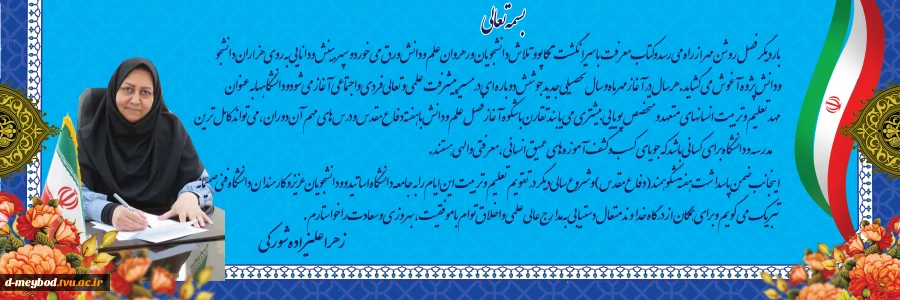 بسمه تعالی
بار دیگر فصل روشن مهر از راه می رسد و کتاب معرفت با سر انگشت تکاپو و تلاش دانشجویان و رهروان علم و دانش ورق می خورد و سپهر بینش و دانایی به روی هزاران دانشجو
و دانش پژوه آغوش می گشاید. هر سال در آغاز مهر ماه و سال تحصیلی جدید جوشش دوباره ای در مسیر پیشرفت علمی و تعالی فردی و اجتماعی آغاز می شود و دانشگاهها به عنوان
مهد تعلیم و تربیت انسانهای متعهد و متخصص پویایی بیشتری می یابند تقارن با شکوه آغاز فصل علم و دانش با هفته دفاع مقدس و درس های مهم آن دوران، می تواند کامل ترین
مدرسه و دانشگاه برای کسانی باشد که جویای کسب و کشف آموزه های عمیق انسانی، معرفتی و الهی هستند.
اینجانب ضمن پاسداشت هفته شکوهمند (دفاع مقدس) و شروع سالی دیگر در تقویم تعلیم و تربیت این ایام را به جامعه دانشگاه اساتید و دانشجویان عزیز و کارمندان دانشگاه فنی صمیمانه
تبریک می گویم و برای همگان از درگاه خداوند متعال دستیابی به مدارج عالی علمی و اخلاق توام با موفقیت، بهروزی و سعادت را خواستارم.
زهرا علیزاده شورکی
d-meybod.tvu.ac.ir